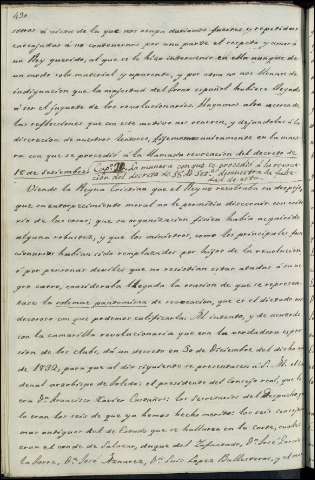 430
somos á vista de la que nos venga dariamos fuertes y repetidas
carcajadas á no contenernos por una parte el respeto y amor á
un Rey querido, al que se le hizo intervenir en ella aunque de
un modo solo material y aparente, y por otra no nos llenara de
indignacion que la magestad del trono español hubiese llegado
á ser el juguete de los revolucionarios. Hagamos alto acerca de
las reflecsiones que con este motivo nos ocurren, y dejandolas á la
discrecion de nuestros lectores, fijemonos unicamente en la mane-
ra con que se procedió á la llamada revocacion del decreto de
18 de Setiembre. La manera con que se procedió á la revoca-
cion del decreto de 18 de Set.e demuestra la
de este.
Viendo la Reyna Cristina que el Rey no recobraba su despejo,
que su entorpecimiento moral no le permitia discernir con crite-
rio de las cosas, que su organizacion fisica habia adquirido
alguna robustez, y que los ministros, como los principales fun-
cionarios habian sido remplazados por hijos de la revolucion
ó por personas debiles que no resistian estar atados á su ne-
gro carro, consideraba llegada la ocasion de que se represen-
tase la odiosa pantomima de revocacion, que es el dictado mas
decoroso con que podemos calificarla. Al intento, y de acuerdo
con la camarilla revolucionaria que era la verdadera espre-
sion de los clubs, dá un decreto en 30 de Diciembre del dicho año
de 1832, para que al dia siguiente se presentasen á S. M. el car-
denal arzobispo de Toledo: el presidente del Consejo real, que lo
era Dn. Francisco Xavier Castaños: los Secretarios del Despacho, que
lo eran los seis de que ya hemos hecho merito: los seis consejeros
mas antiguos del de Estado que se hallaren en la corte, cuales
eran el conde de Salazar, duque del Infantado, Dn. José García de
la Torre, Dn. José Aznarez, Dn. Luis Lopez Ballesteros, y el mar-